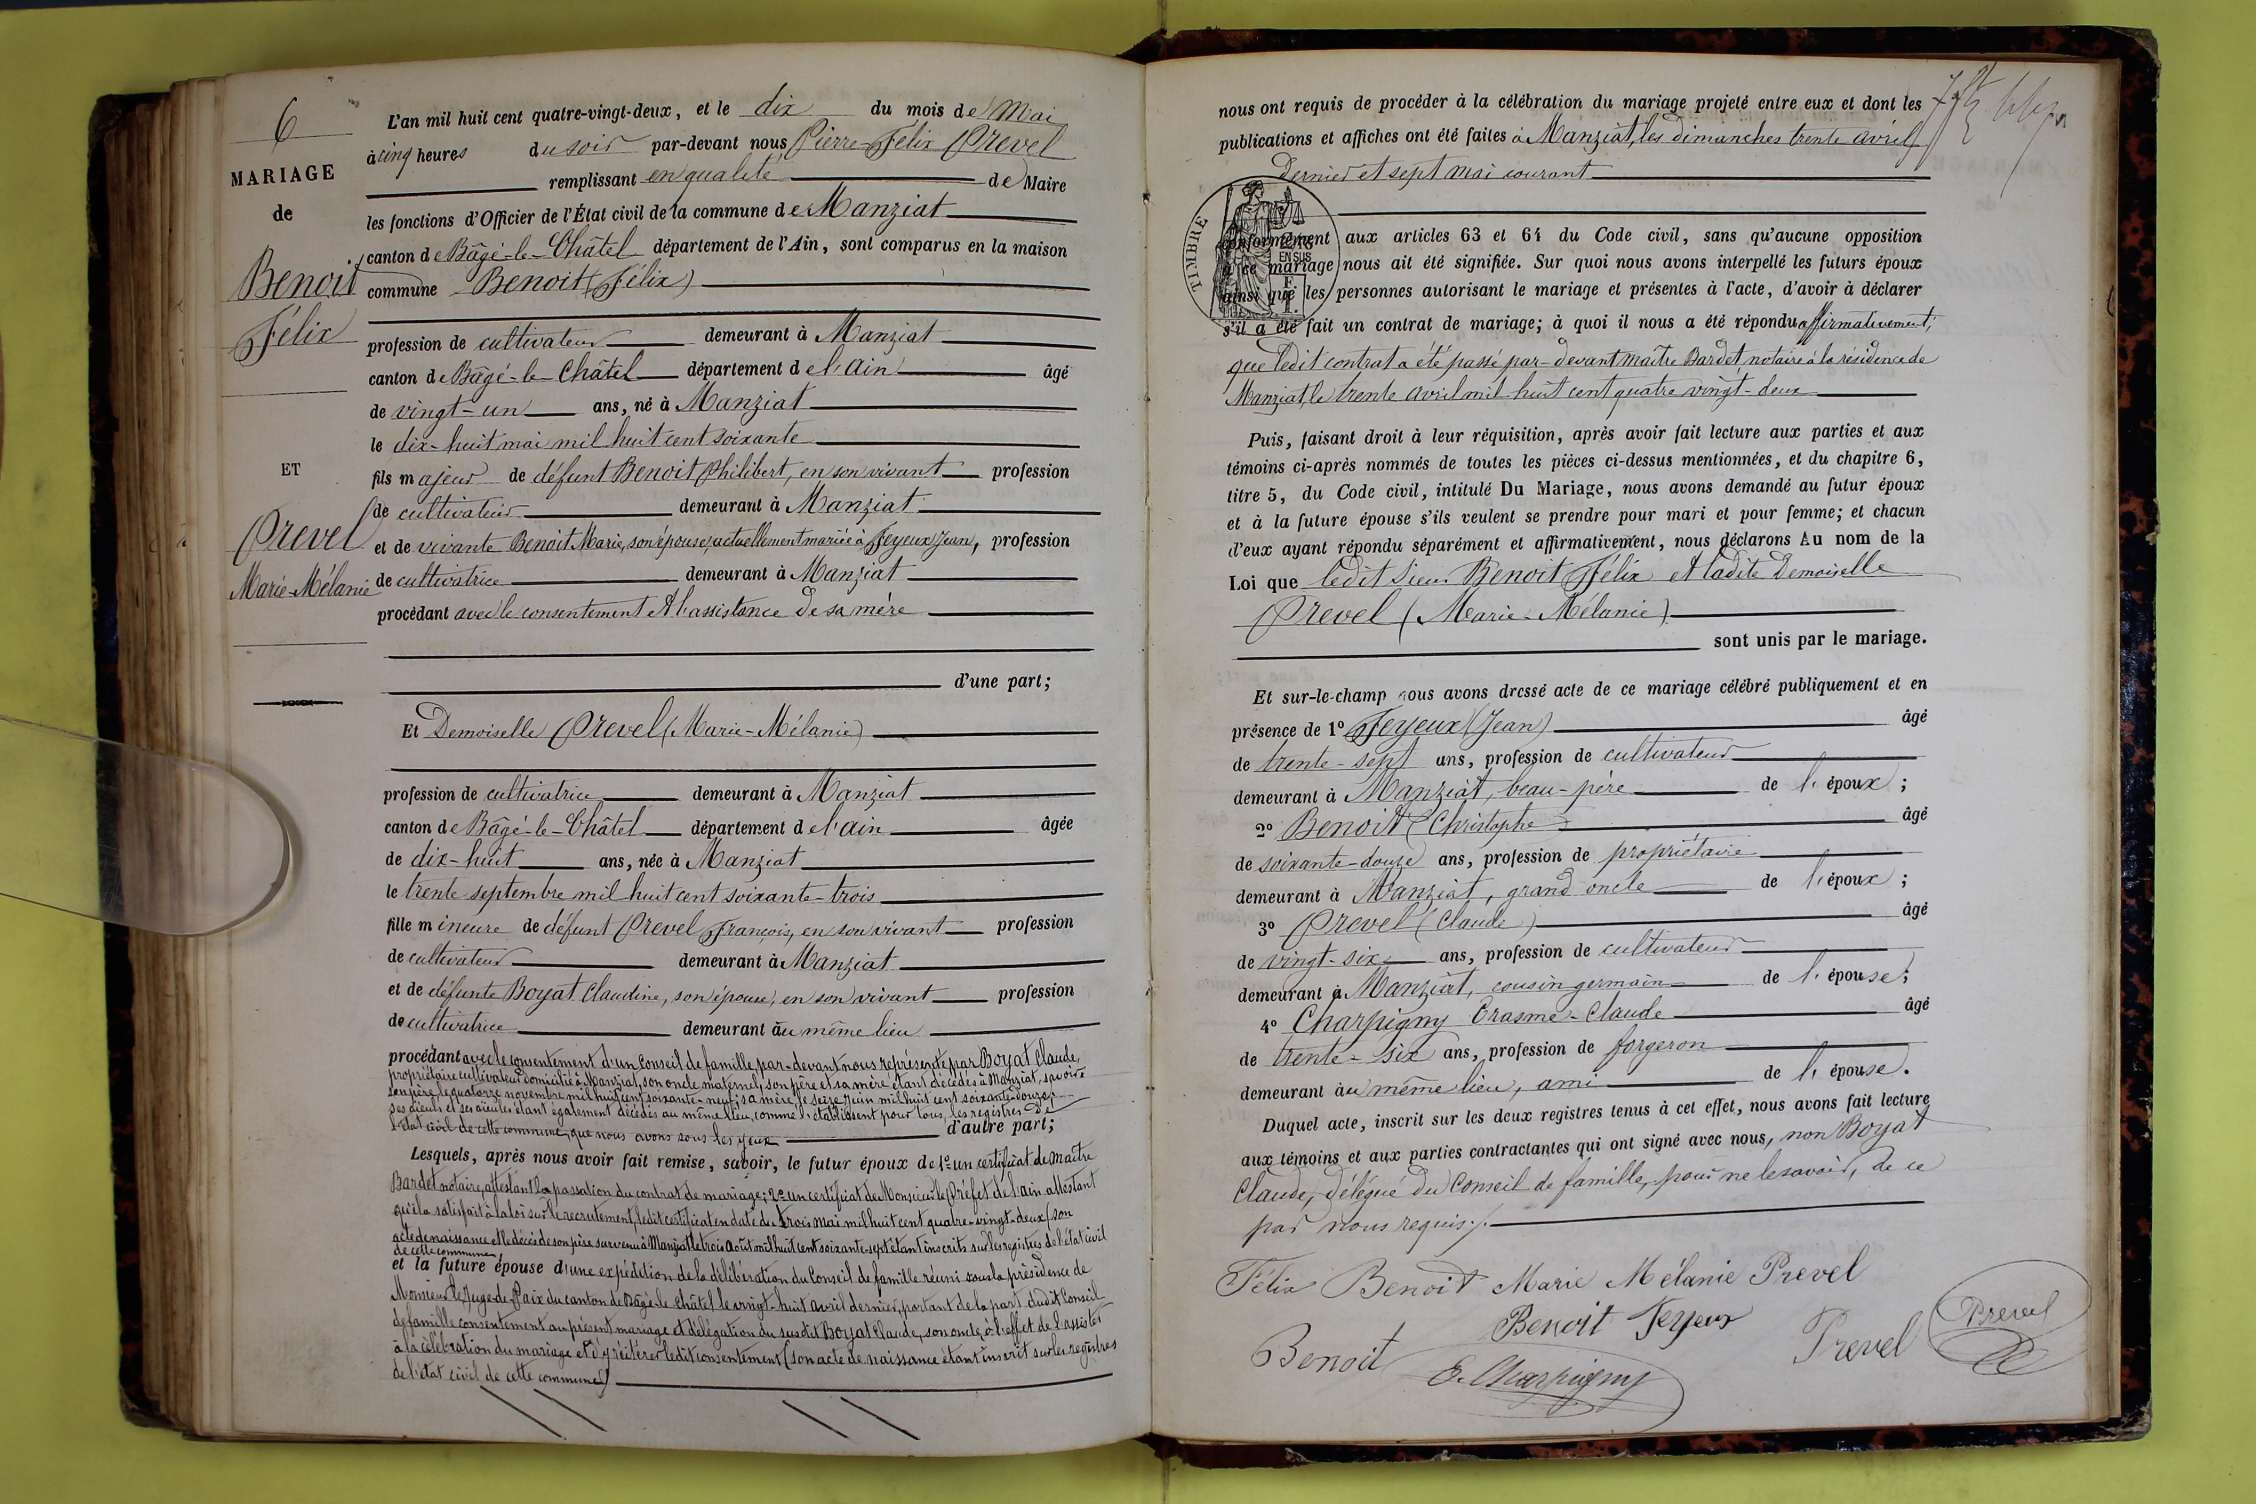 6
MARIAGE
de
Benoit
Félix
ET
Prevel
Marie-Mélanie
L'an mil huit cent quatre-vingt-deux, et le dix du mois de Mai
à cinq heures du soir par-devant nous Pierre-Félix Prevel
remplissant en qualité de Maire
les fonctions d'Officier de l'État civil de la commune de Manziat
canton de Bâgé-le-Châtel département de l'Ain, sont comparus en la maison
commune Benoit (Félix)
profession de cultivateur demeurant à Manziat
canton de Bâgé-le-Châtel département de l'ain âgé
de vingt-un ans, né à Manziat
le dix-huit mai mil huit cent soixante
fils majeur de défunt Benoit Philibert, en son vivant profession
de cultivateur demeurant à Manziat
et de vivante Benoit Marie, son épouse, actuellement mariée à Feyeux Jean, profession
de cultivatrice demeurant à Manziat
procédant avec le consentement et l'assistance de sa mère
d'une part;
Et Demoiselle Prevel (Marie-Mélanie)
profession de cultivatrice demeurant à Manziat
canton de Bâgé-le-Châtel département de l'ain âgée
de dix-huit ans, née à Manziat
le trente septembre mil huit cent soixante-trois
fille mineure de défunt Prevel François, en son vivant profession
de cultivateur demeurant à Manziat
et de défunte Boyat Claudine, son épouse, en son vivant profession
de cultivatrice demeurant au même lieu
procédant avec le consentement d'un Conseil de famille par-devant nous représenté par Boyat Claude,
propriétaire cultivateur domicilié à Manziat, son oncle maternel, son père et sa mère étant décédés à Manziat, savoir:
son père le quatorze novembre mil huit cent soixante-neuf; sa mère, le seize Juin mil huit cent soixante-douze;
ses aieuls et ses aieules étant également décédés au même lieu, comme l'établissent pour tous, les registres de
l'état civil de cette commune, que nous avons sous les yeux d'autre part;
Lesquels, après nous avoir fait remise, savoir, le futur époux de 1º un certificat de Maître
Bardet notaire, attestant la passation du contrat de mariage; 2º un certificat de Monsieur le Préfet de l'ain attestant
qu'il a satisfait à la loi sur le recrutement, ledit certificat en date du trois mai mil huit cent quatre-vingt-deux (son
acte de naissance et le décès de son père survenu à Manziat le trois août mil huit cent soixante-sept étant inscrits sur les registres de l'état civil
de cette commune,
et la future épouse d'une expédition de la délibération du Conseil de famille réuni sous la présidence de
Monsieur le Juge de Paix du canton de Bâgé-le-Châtel le vingt-huit avril dernier, portant de la part dudit Conseil
de famille consentement au présent mariage et délégation du susdit Boyat Claude, son oncle, à l'effet de l'assister
à la célébration du mariage et d'y réitérer ledit consentement (son acte de naissance étant inscrit sur les registres
de l'état civil de cette commune)
nous ont requis de procéder à la célébration du mariage projeté entre eux et dont les
publications et affiches ont été faites à Manziat, les dimanches trente avril
dernier et sept mai courant
TIMBRE
2/10
EN SUS
conformément aux articles 63 et 64 du Code civil, sans qu'aucune opposition
à ce mariage nous ait été signifiée. Sur quoi nous avons interpellé les futurs époux
ainsi que les personnes autorisant le mariage et présentes à l'acte, d'avoir à déclarer
s'il a été fait un contrat de mariage; à quoi il nous a été répondu affirmativement;
que ledit contrat a été passé par-devant maître Bardet notaire à la résidence de
Manziat, le trente avril mil huit cent quatre vingt-deux
Puis, faisant droit à leur réquisition, après avoir fait lecture aux parties et aux
témoins ci-après nommés de toutes les pièces ci-dessus mentionnées, et du chapitre 6,
titre 5, du Code civil, intitulé Du Mariage, nous avons demandé au futur époux
et à la future épouse s'ils veulent se prendre pour mari et pour femme; et chacun
d'eux ayant répondu séparément et affirmativement, nous déclarons Au nom de la
Loi que ledit Sieur Benoit Félix et ladite Demoiselle
Prevel (Marie-Mélanie)
sont unis par le mariage.
Et sur-le-champ nous avons dressé acte de ce mariage célébré publiquement et en
présence de 1º Feyeux (Jean) âgé
de trente-sept ans, profession de cultivateur
demeurant à Manziat, beau-père de l'époux;
2º Benoit (Christophe) âgé
de soixante-douze ans, profession de propriétaire
demeurant à Manziat, grand oncle de l'époux;
3º Prevel (Claude) âgé
de vingt-six ans, profession de cultivateur
demeurant à Manziat, cousin germain de l'épouse;
4º Charpigny Erasme-Claude âgé
de trente-six ans, profession de forgeron
demeurant au même lieu, ami de l'épouse.
Duquel acte, inscrit sur les deux registres tenus à cet effet, nous avons fait lecture
aux témoins et aux parties contractantes qui ont signé avec nous, non Boyat
Claude, délégué du Conseil de famille, pour ne le savoir, de ce
par nous requis./.
Félix Benoit Marie Mélanie Prevel
Benoit Feyeux
Benoit E. Charpigny Prevel Prevel